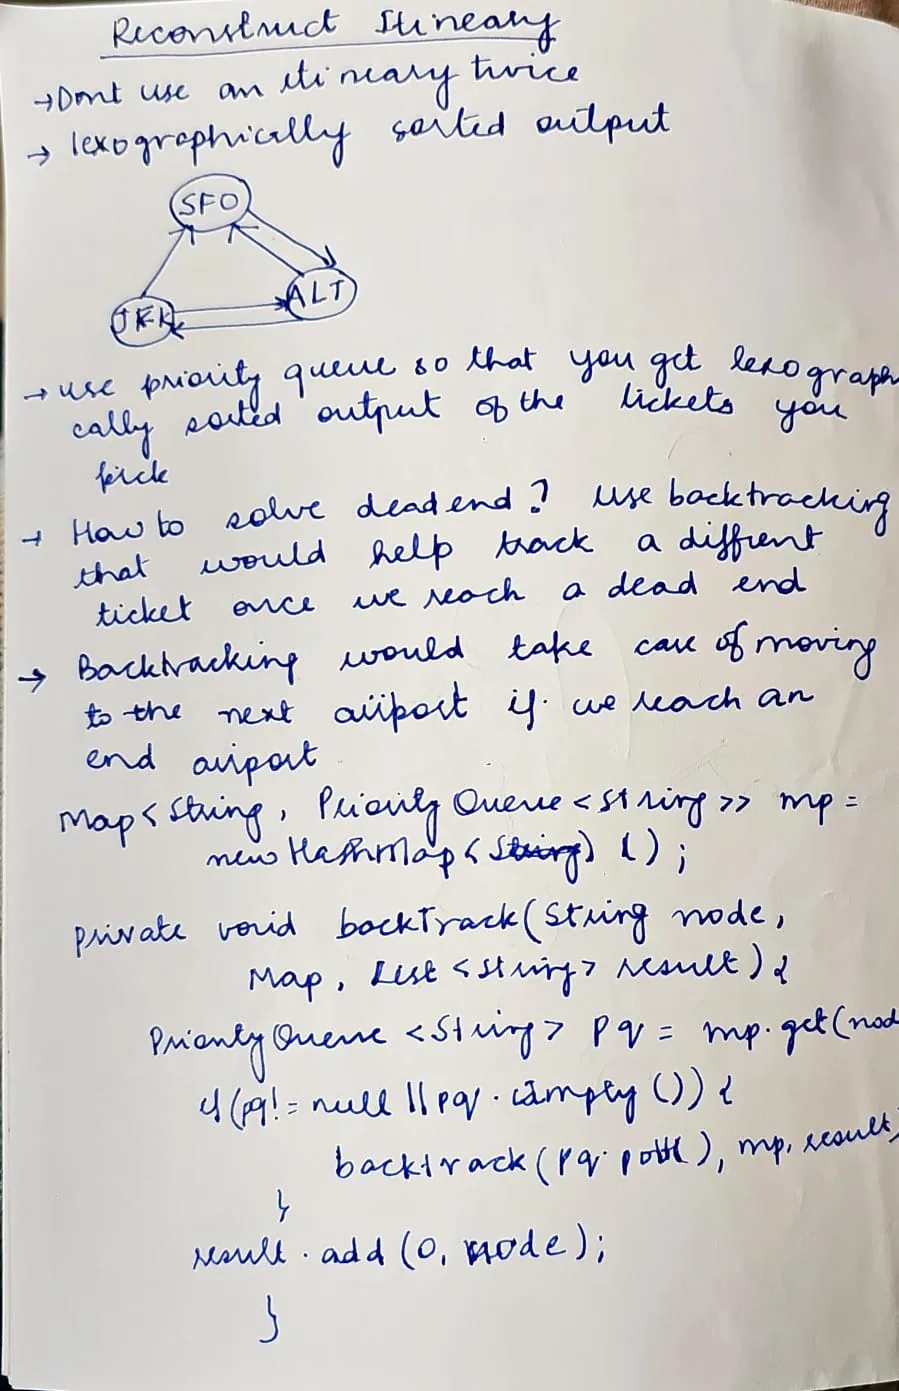 Reconstruct Itineary
→Dont use an itineary twice
→ lexographically sorted output
SFO
JFK
ALT
→ use priority queue so that you get lexograph
cally sorted output of the tickets you
pick
→ How to solve dead end? use backtracking
that would help track a diffrent
ticket once we reach a dead end
→ Backtracking would take care of moving
to the next airport if we reach an
end airport
Map<String, Priority Queue<String>> mp =
new HashMap< () ;
private void backTrack(String node,
Map, List <String> result) {
Priority Queue <String> pq = mp.get(nod
if (pq! = null || pq . isEmpty ()) {
backtrack(pq. ), mp, result,
}
result . add (0, node);
}